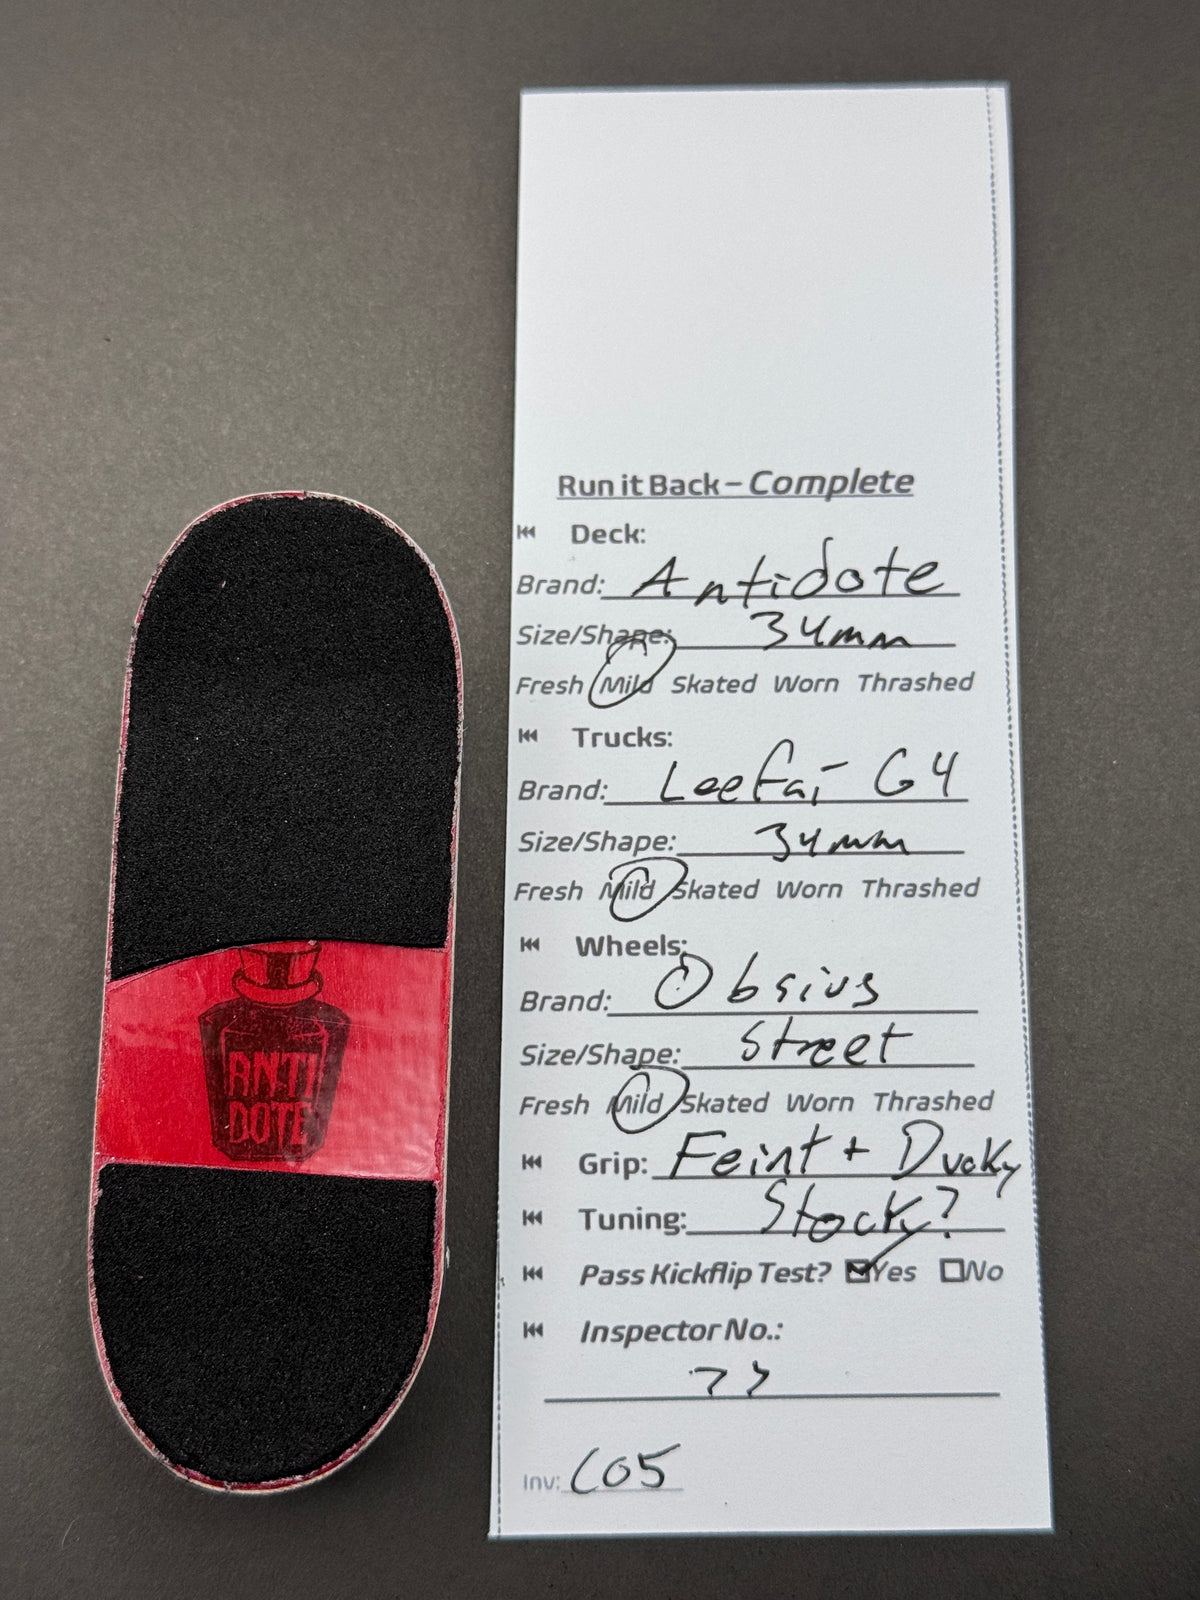 ANTI
DOTE
Run it Back – Complete
Deck:
Brand: Antidote
Size/Shape: 34mm
Fresh Mild Skated Worn Thrashed
Trucks:
Brand: Leefai G4
Size/Shape: 34mm
Fresh Mild Skated Worn Thrashed
Wheels:
Brand: Obsius
Size/Shape: Street
Fresh Mild Skated Worn Thrashed
Grip: Feint + Ducky
Tuning: Stock?
Pass Kickflip Test? Yes No
Inspector No.:
Inv: C05